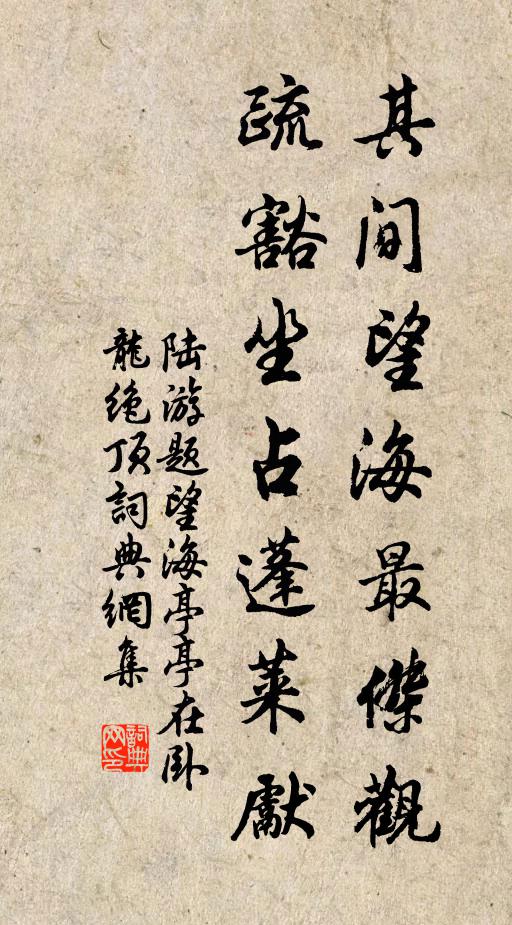 其間望海最傑觀
疏豁坐占蓬萊獻
陆游题望海亭亭在卧
龍絶頂詞典網集
詞典网印